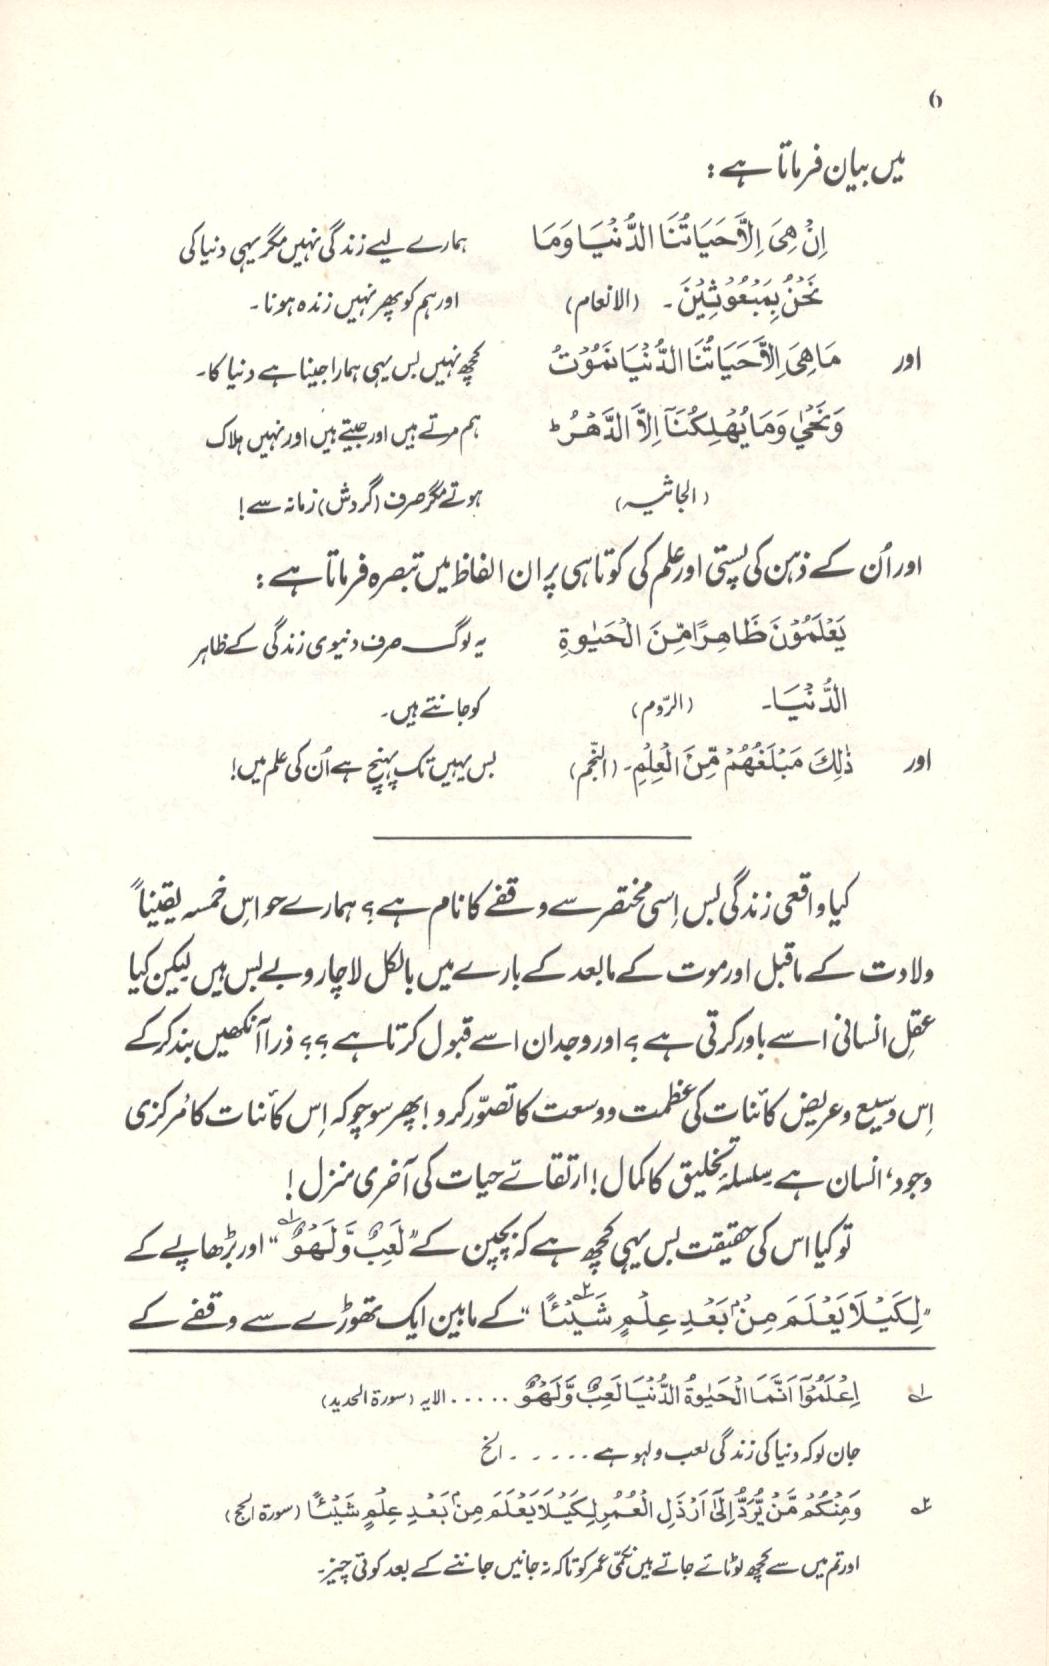 6
میں بیان فرماتا ہے :
اِنْ هِیَ اِلَّا حَیَاتُنَا الدُّنْیَا وَمَا ہمارے لیے زندگی نہیں مگر یہی دنیا کی
نَحْنُ بِمَبْعُوْثِیْنَ ۔ (الانعام) اور ہم کو پھر نہیں زندہ ہونا ۔
اور مَا هِیَ اِلَّا حَیَاتُنَا الدُّنْیَا نَمُوْتُ کچھ نہیں بس یہی ہمارا جینا ہے دنیا کا۔
وَنَحْیٰ وَمَا یُهْلِکُنَآ اِلَّا الدَّهْرُ ط ہم مرتے ہیں اور جیتے ہیں اور نہیں ہلاک
(الجاثیہ) ہوتے مگر صرف (گردش) زمانہ سے !
اور اُن کے ذہن کی پستی اور علم کی کوتاہی پر ان الفاظ میں تبصرہ فرماتا ہے :
یَعْلَمُوْنَ ظَاهِرًا مِّنَ الْحَیٰوةِ یہ لوگ صرف دنیوی زندگی کے ظاہر
الدُّنْیَا۔ (الرّوم) کو جانتے ہیں۔
اور ذٰلِکَ مَبْلَغُهُمْ مِّنَ الْعِلْمِ۔ (النّجم) بس یہیں تک پہنچ ہے اُن کی علم میں!
کیا واقعی زندگی بس اِسی مختصر سے وقفے کا نام ہے ؟ ہمارے حواسِ خمسہ یقیناً
ولادت کے ماقبل اور موت کے مابعد کے بارے میں بالکل لاچار و بے بس ہیں لیکن کیا
عقلِ انسانی اسے باور کرتی ہے ؟ اور وجدان اسے قبول کرتا ہے ؟؟ ذرا آنکھیں بند کر کے
اِس وسیع و عریض کائنات کی عظمت و وسعت کا تصوّر کرو! پھر سوچو کہ اِس کائنات کا مرکزی
وجود، انسان ہے سلسلۂ تخلیق کا کمال! ارتقائے حیات کی آخری منزل !
تو کیا اس کی حقیقت بس یہی کچھ ہے کہ بچپن کے "لَعِبٌ وَّلَهْوٌ"۱ اور بڑھاپے کے
"لِکَیْلَا یَعْلَمَ مِنْۢ بَعْدِ عِلْمٍ شَیْئًا"۲ کے مابین ایک تھوڑے سے وقفے کے
۱ اِعْلَمُوْٓا اَنَّمَا الْحَیٰوةُ الدُّنْیَا لَعِبٌ وَّلَهْوٌ ..... الایہ (سورۃ الحدید)
جان لو کہ دنیا کی زندگی لعب و لہو ہے ..... الخ
۲ وَمِنْکُمْ مَّنْ یُّرَدُّ اِلٰٓی اَرْذَلِ الْعُمُرِ لِکَیْلَا یَعْلَمَ مِنْۢ بَعْدِ عِلْمٍ شَیْئًا (سورۃ الحج)
اور تم میں سے کچھ لوٹائے جاتے ہیں نکمّی عمر کو تا کہ نہ جانیں جاننے کے بعد کوئی چیز۔